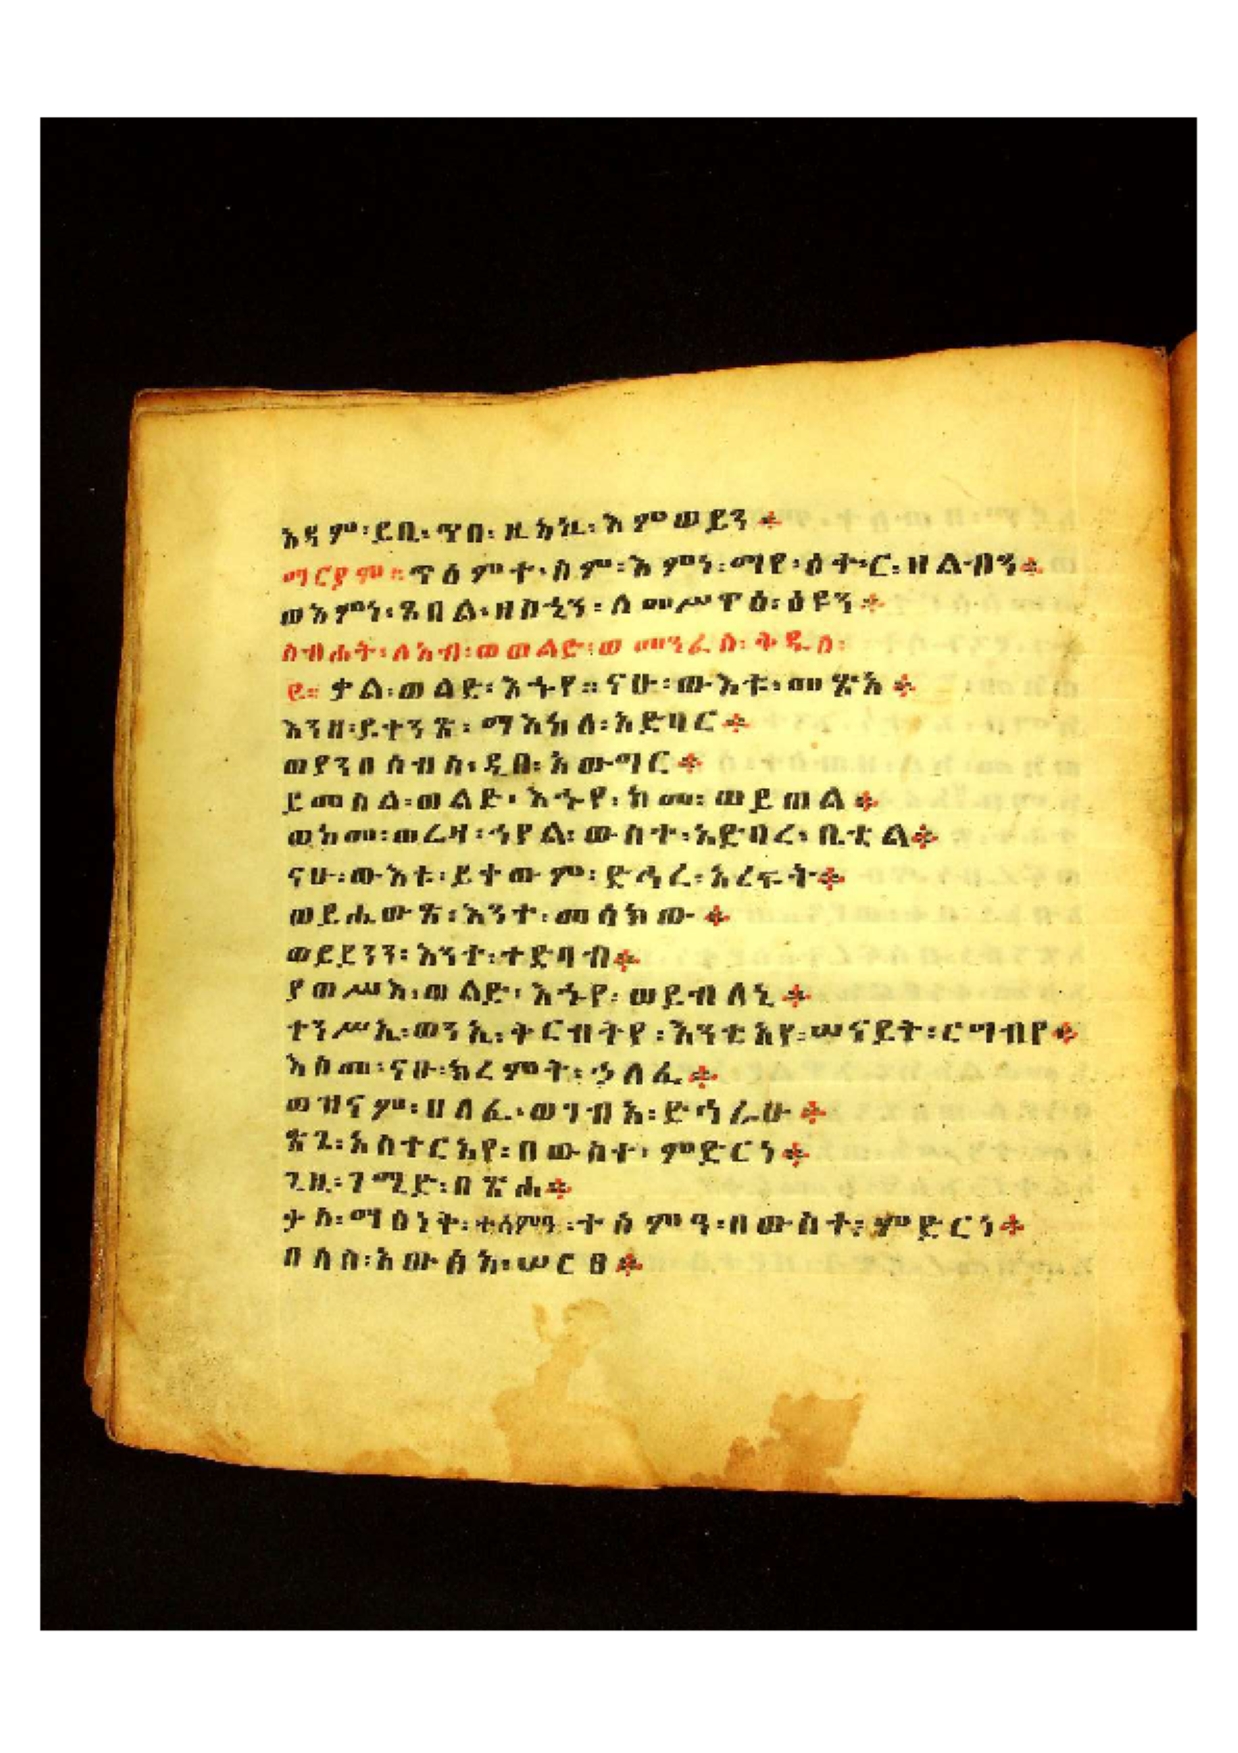 አዳም፡ይቤ፡ጥበ፡ዚአኪ፡እምወይን፨
ማርያም። ጥዕምተ፡ስም፡እምነ፡ማየ፡ዕትር፡ዘልብን፨
ወእምነ፡ጼበል፡ዘስኂን፡ለመሥዋዕ፡ዕዩን፨
ስብሐት፡ለአብ፡ወወልድ፡ወመንፈስ፡ቅዱስ፡
ቃል፡ወልድ፡እኁየ። ናሁ፡ውእቱ፡መጽአ፨
እንዘ፡ይተንጽ፡ማእከለ፡አድባር፨
ወያንበሰብስ፡ዲበ፡አውግር፨
ይመስል፡ወልድ፡እኁየ፡ከመ፡ወይጠል፨
ወከመ፡ወሬዛ፡ኀየል፡ውስተ፡አድባረ፡ቤቴል፨
ናሁ፡ውእቱ፡ይተውም፡ድኅረ፡አረፍት፨
ወይሔውጽ፡እንተ፡መሰክው፨
ወይደንን፡እንተ፡ተድባብ፨
ያወሥእ፡ወልድ፡እኁየ፡ወይብለኒ፨
ተንሥኢ፡ወንኢ፡ቅርብትየ፡እንቲአየ፡ሠናይት፡ርግብየ፨
እስመ፡ናሁ፡ክረምት፡ኃለፈ፨
ወዝናም፡ዘለፈ፡ወገብአ፡ድኅሬሁ፨
ጽጌ፡አስተርአየ፡በውስተ፡ምድርነ፨
ጊዜ፡ገሚድ፡በጽሐ፨
ቃለ፡ማዕነቅ፡ተሰምዓ፡ተሰምዓ፡በውስተ፡ምድርነ፨
በለስ፡አውፅአ፡ሠርፀ፨